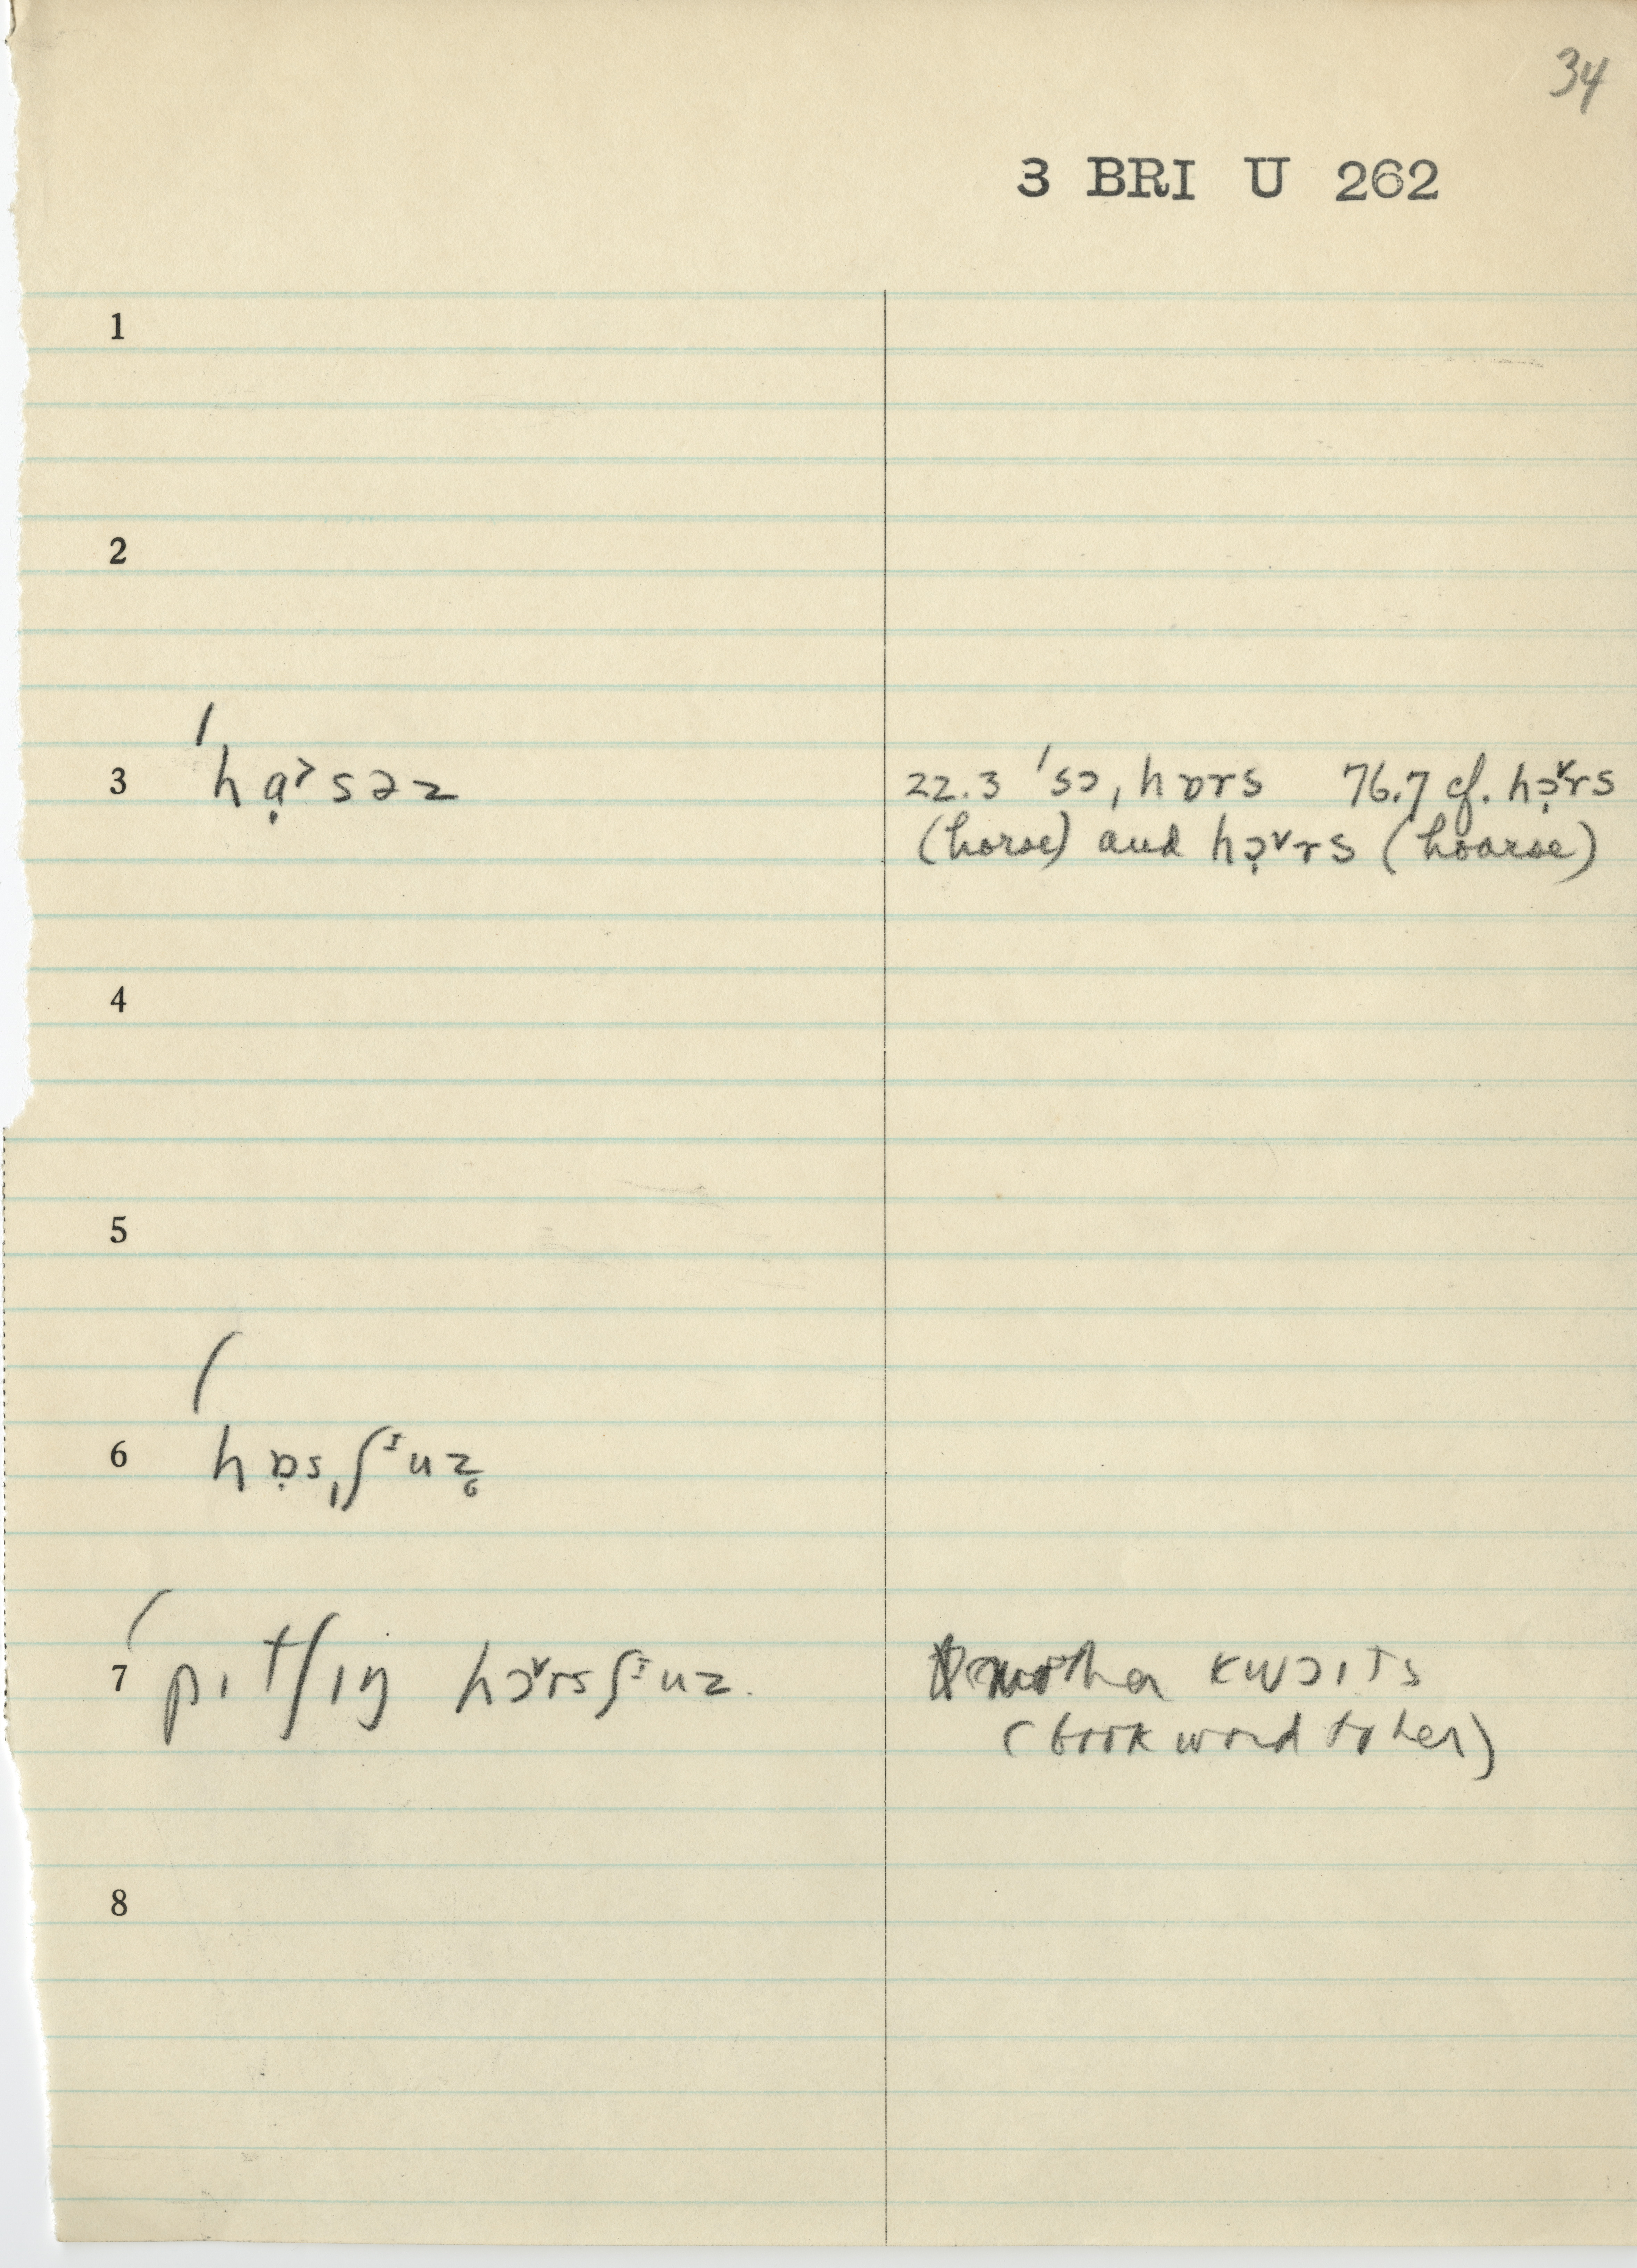 34
3 BRI U 262
1
2
3 ˈhɑ̣˃səz
22.3 ˈsɔˌhɒrs 76.7 cf. hɔ̣˅rs
(horse) and hɔ̣˅rs (hoarse)
4
5
6 hɒ̣sˌʃᶤuz̥
7 pɪtʃɪŋ hɔ˅rsʃᶤuz.
kwɔɪts
(book word to her)
8